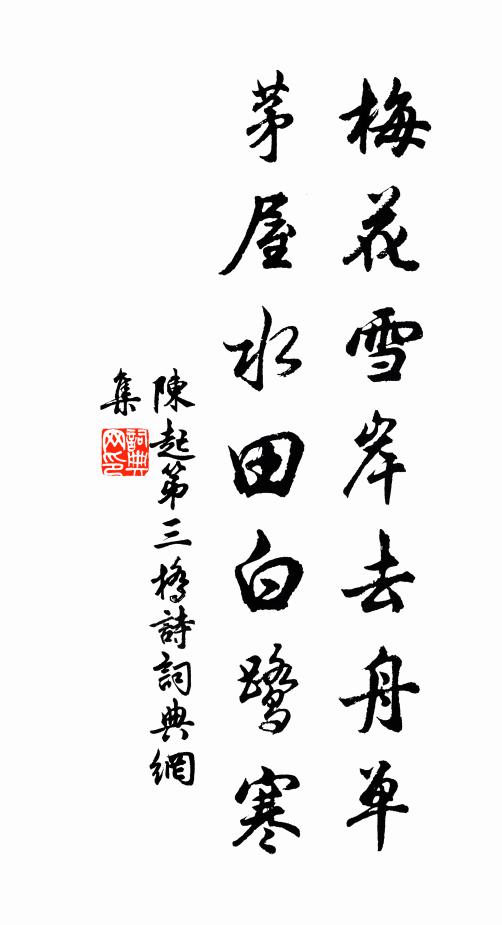 梅花雪岸去舟单
茅屋水田白鹭寒
陳起第三橋詩詞典網
集
詞典网印